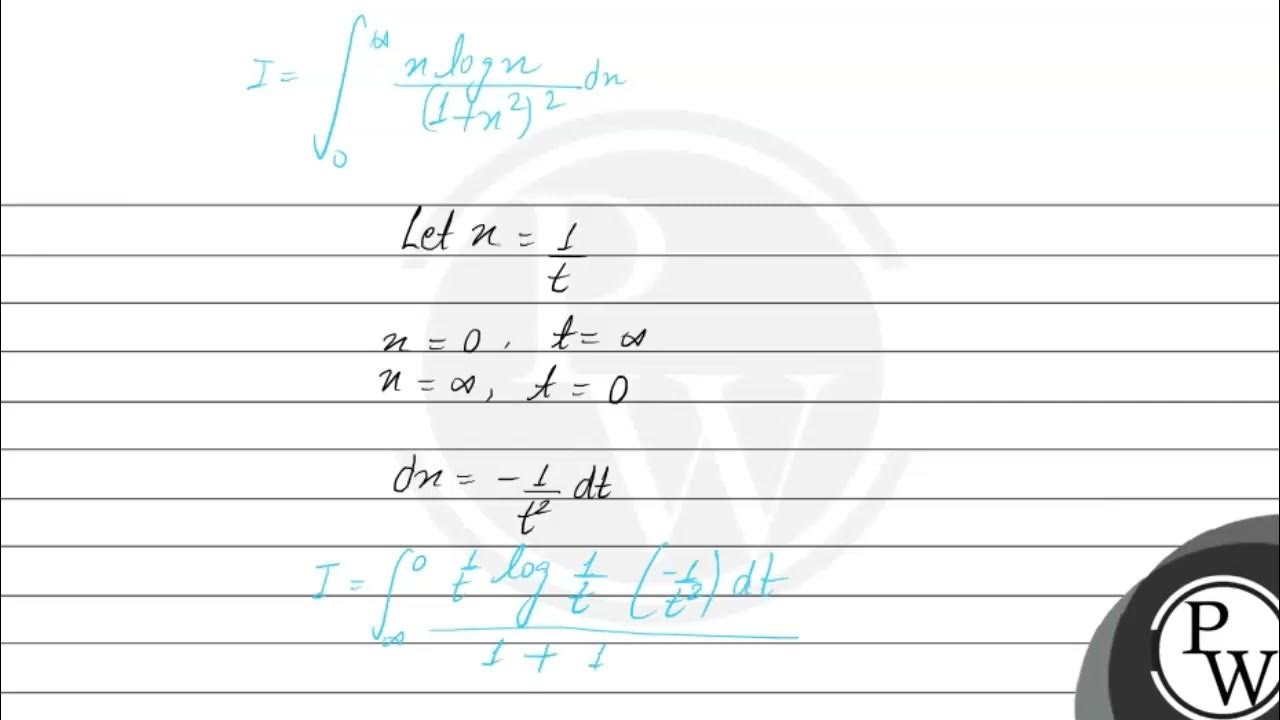 I = ∫₀^∞ x log x / (1+x²)² dx
Let x = 1/t
x = 0, t = ∞
x = ∞, t = 0
dx = -1/t² dt
I = ∫_∞^0 1/t log 1/t (-1/t²) dt / 1 + 1
P
W
P
W